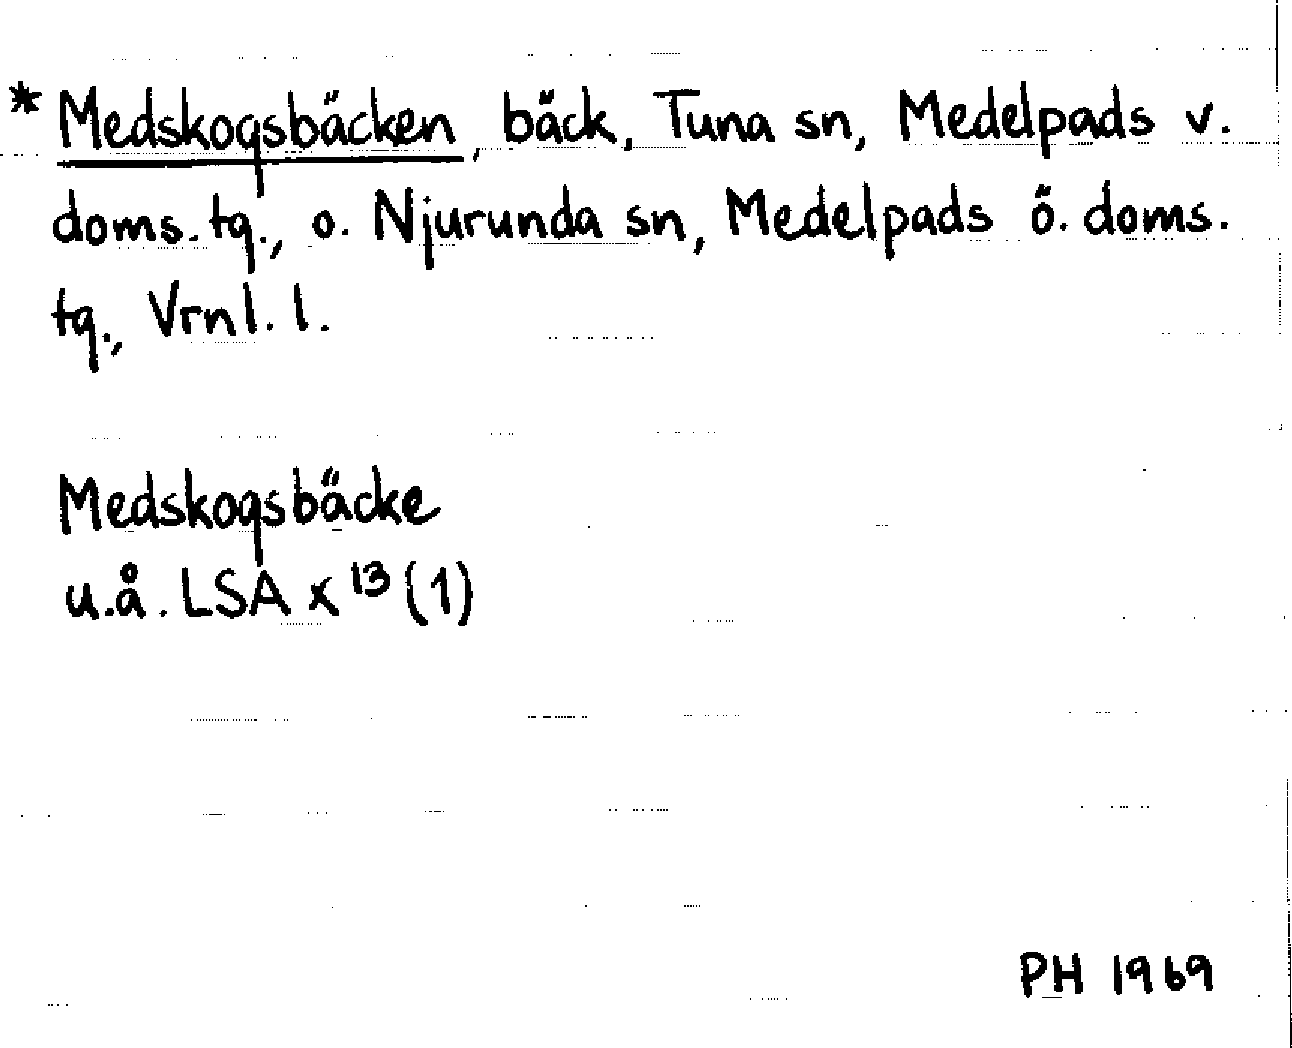 * Medskogsbäcken, bäck, Tuna sn, Medelpads v.
doms. tg., o. Njurunda sn, Medelpads ö. doms.
tg., Vrnl. l.
Medskogsbäcke
u.å. LSA x¹³ (1)
PH 1969